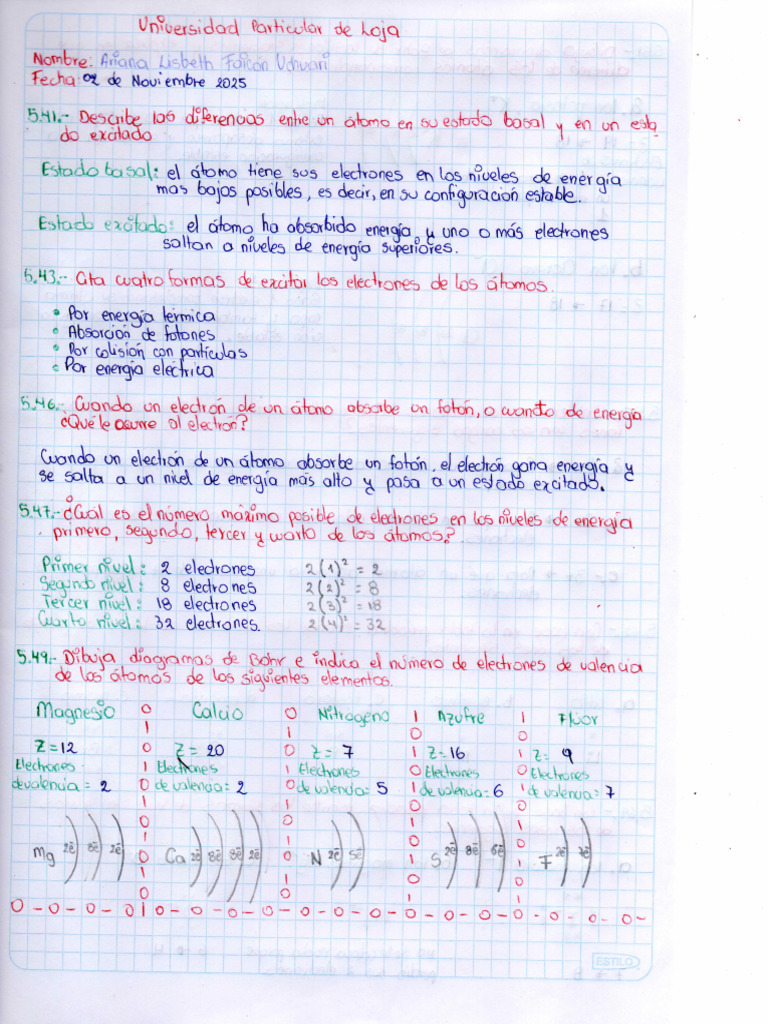 Universidad Particular de Loja
Nombre: Ariana Lisbeth Faican Uchuari
Fecha: 02 de Noviembre 2025
5.41.- Describe las diferencias entre un átomo en su estado basal y en un esta
do excitado
Estado basal: el átomo tiene sus electrones en los niveles de energía
mas bajos posibles, es decir, en su configuración estable.
Estado excitado: el átomo ha absorbido energía, y uno o más electrones
saltan a niveles de energía superiores.
5.43.- Cita cuatro formas de excitar los electrones de los átomos.
• Por energía térmica
• Absorción de fotones
• Por colisión con partículas
• Por energía eléctrica
5.46.- Cuando un electrón de un átomo absorbe un fotón, o cuanto de energía
¿Qué le ocurre al electrón?
Cuando un electrón de un átomo absorbe un fotón, el electrón gana energía y
se salta a un nivel de energía más alto y pasa a un estado excitado.
5.47.- ¿Cual es el número máximo posible de electrones en los niveles de energía
primero, segundo, tercer y cuarto de los átomos.?
Primer nivel: 2 electrones 2(1)² = 2
Segundo nivel: 8 electrones 2(2)² = 8
Tercer nivel: 18 electrones 2(3)² = 18
Cuarto nivel: 32 electrones. 2(4)² = 32
5.49.- Dibuja diagramas de Bohr e indica el número de electrones de valencia
de los átomos de los siguientes elementos.
Magnesio Calcio Nitrogeno Azufre Fluor
Z = 12 Z = 20 Z = 7 Z = 16 Z = 9
Electrones Electrones Electrones Electrones Electrones
de valencia = 2 de valencia = 2 de valencia = 5 de valencia = 6 de valencia = 7
Mg 2ē 8ē 2ē Ca 2ē 8ē 8ē 2ē N 2ē 5ē S 2ē 8ē 6ē F 2ē 7ē
ESTILO